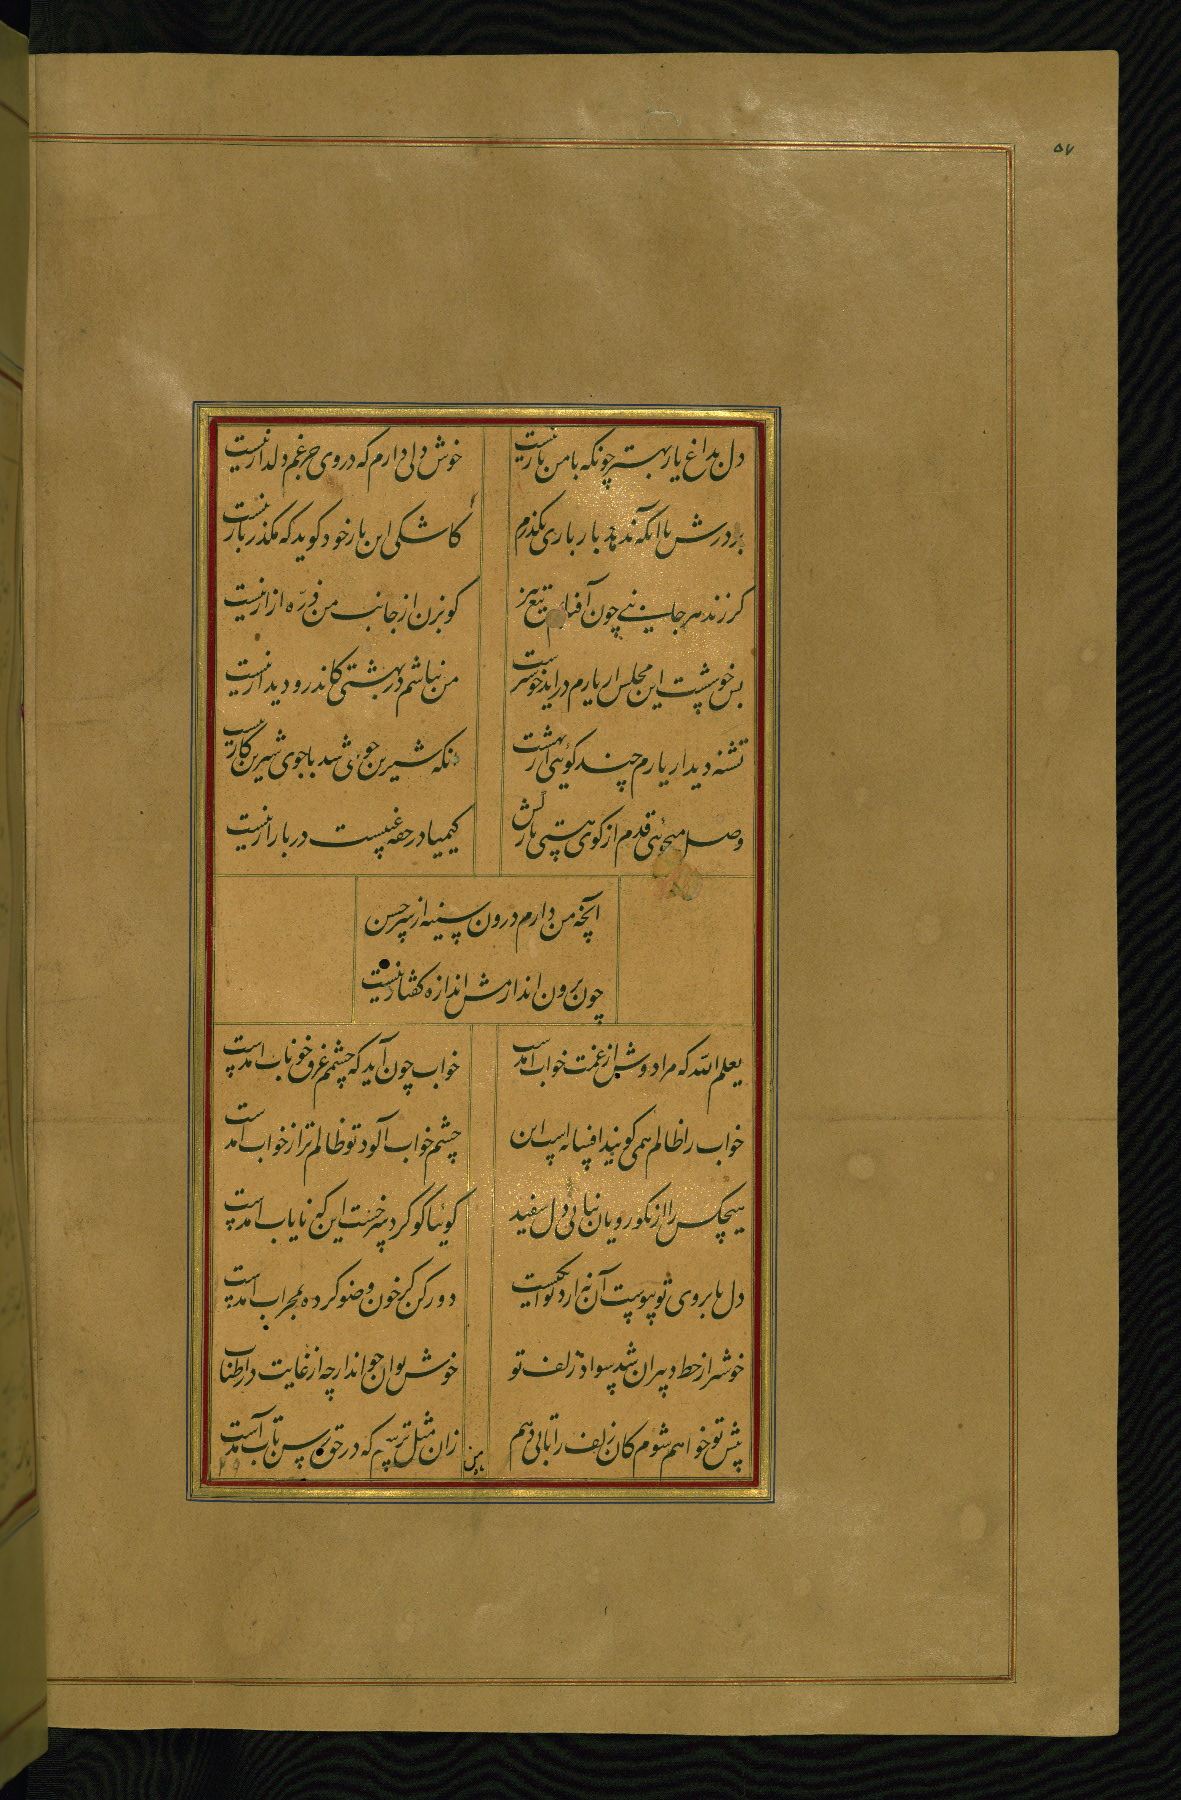 ۵۷
دل بداغ یار بهتر چونکه با من یار نیست
خوش دلی دارم که در وی جز غم دلدار نیست
بر درش با آنکه ندهد بار باری بگذرم
کاشکی این بار خود گوید که مگذر بار نیست
گر زند هر جانبی چون آفتابم تیغ تیز
گو بزن از جانب من ذره آزار نیست
بس خوشست این مجلس ار یارم درآید خوشترست
من نباشم در بهشتی کاندرو دیدار نیست
تشنه دیدار یارم چند گوئی از بهشت
آنکه شیرین جوی شد با جوی شیرین کار نیست
وصل میجوئی قدم از کوی هستی باز کش
کیمیا در حقه غیبست در بازار نیست
آنچه من دارم درون سینه از سر حسن
چون برون اندازمش اندازه گفتار نیست
یعلم الله که مرا دوش از غمت خواب آمدست
خواب چون آید که چشمم غرق خوناب آمدست
خواب را ظالم همی گویند افسانه است این
چشم خواب آلود تو ظالم تر از خواب آمدست
هیچکس را از نکورویان نیابی دل سفید
گوئیا گوگرد سرخست این که نایاب آمدست
دل بابروی تو پیوست آن نیازارد نکوست
دو رکن کز خون وضو کرده بمحراب آمدست
خوشتر از خط دبیران شد سواد زلف تو
خوش توان خواند ار چه از غایت در اطناب
پیش تو خواهم شوم کان زلف را تابی دهم
زان مثل ترسم که در حق رسن تاب آمدست